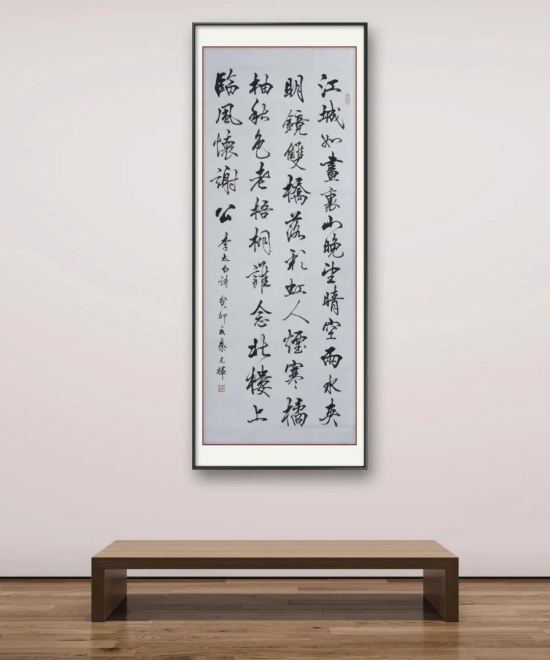 江城如畫裏山晚望晴空兩水夾
明鏡雙橋落彩虹人煙寒橘
柚秋色老梧桐誰念北樓上
臨風懷謝公
李太白詩 癸卯夏秦元輝